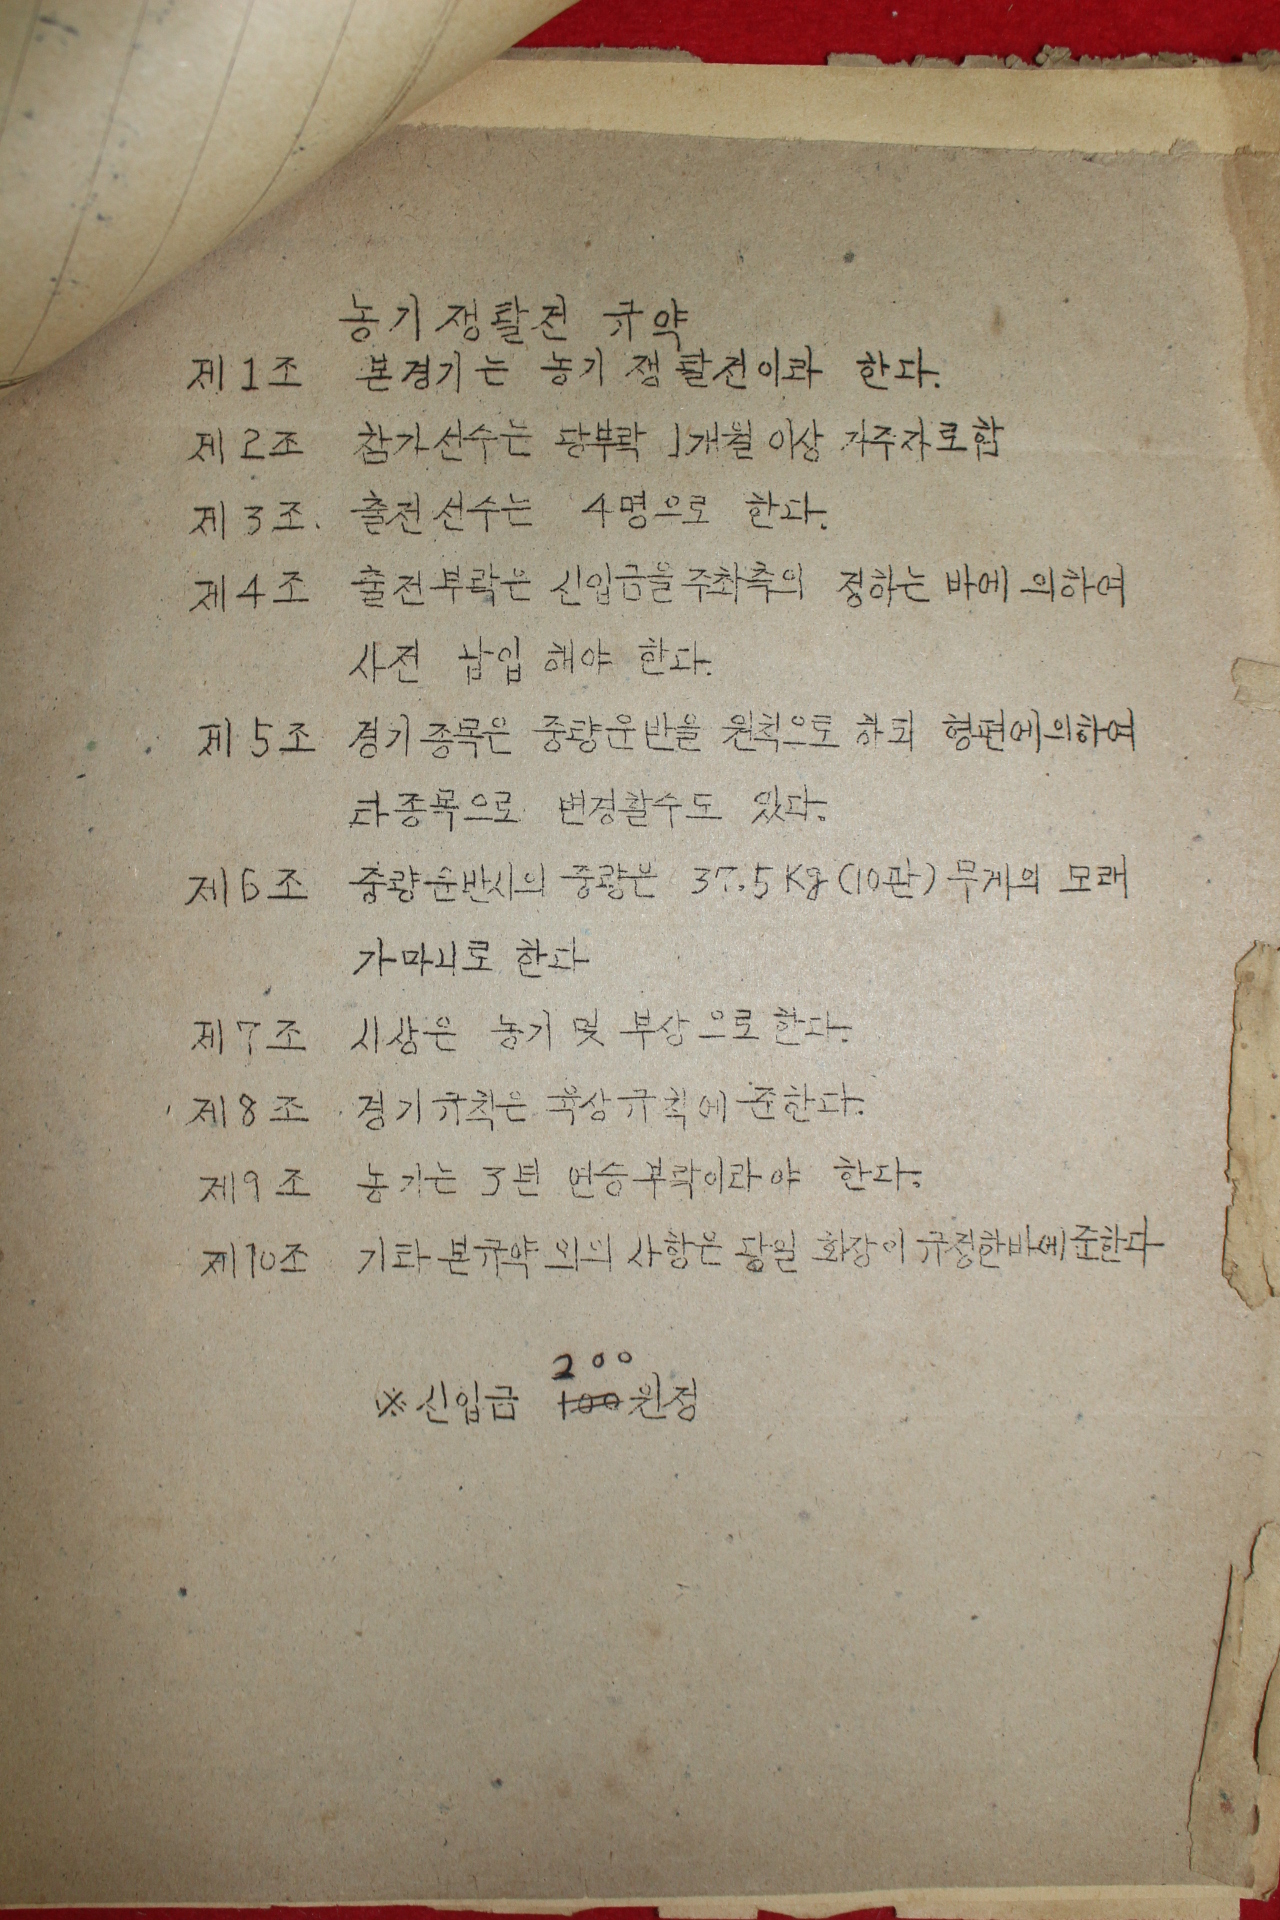 농기쟁탈전 규약
제1조 본경기는 농기쟁탈전이라 한다.
제2조 참가선수는 당부락 1개월 이상 거주자로함
제3조. 출전선수는 4명으로 한다.
제4조 출전부락은 신입금을 주최측의 정하는 바에 의하여
사전 납입 해야 한다.
제5조 경기종목은 중량운반을 원칙으로 하되 형편에의하여
타종목으로 변경할수도 있다.
제6조 중량운반시의 중량은 37.5Kg(10관) 무게의 모래
가마니로 한다
제7조 시상은 농기 및 부상으로한다.
제8조 경기규칙은 육상규칙에 준한다.
제9조 농기는 3년 연승부락이라야 한다.
제10조 기타 본규약 외의 사항은 당일 회장이 규정한바에준한다
200
※신입금 100원정